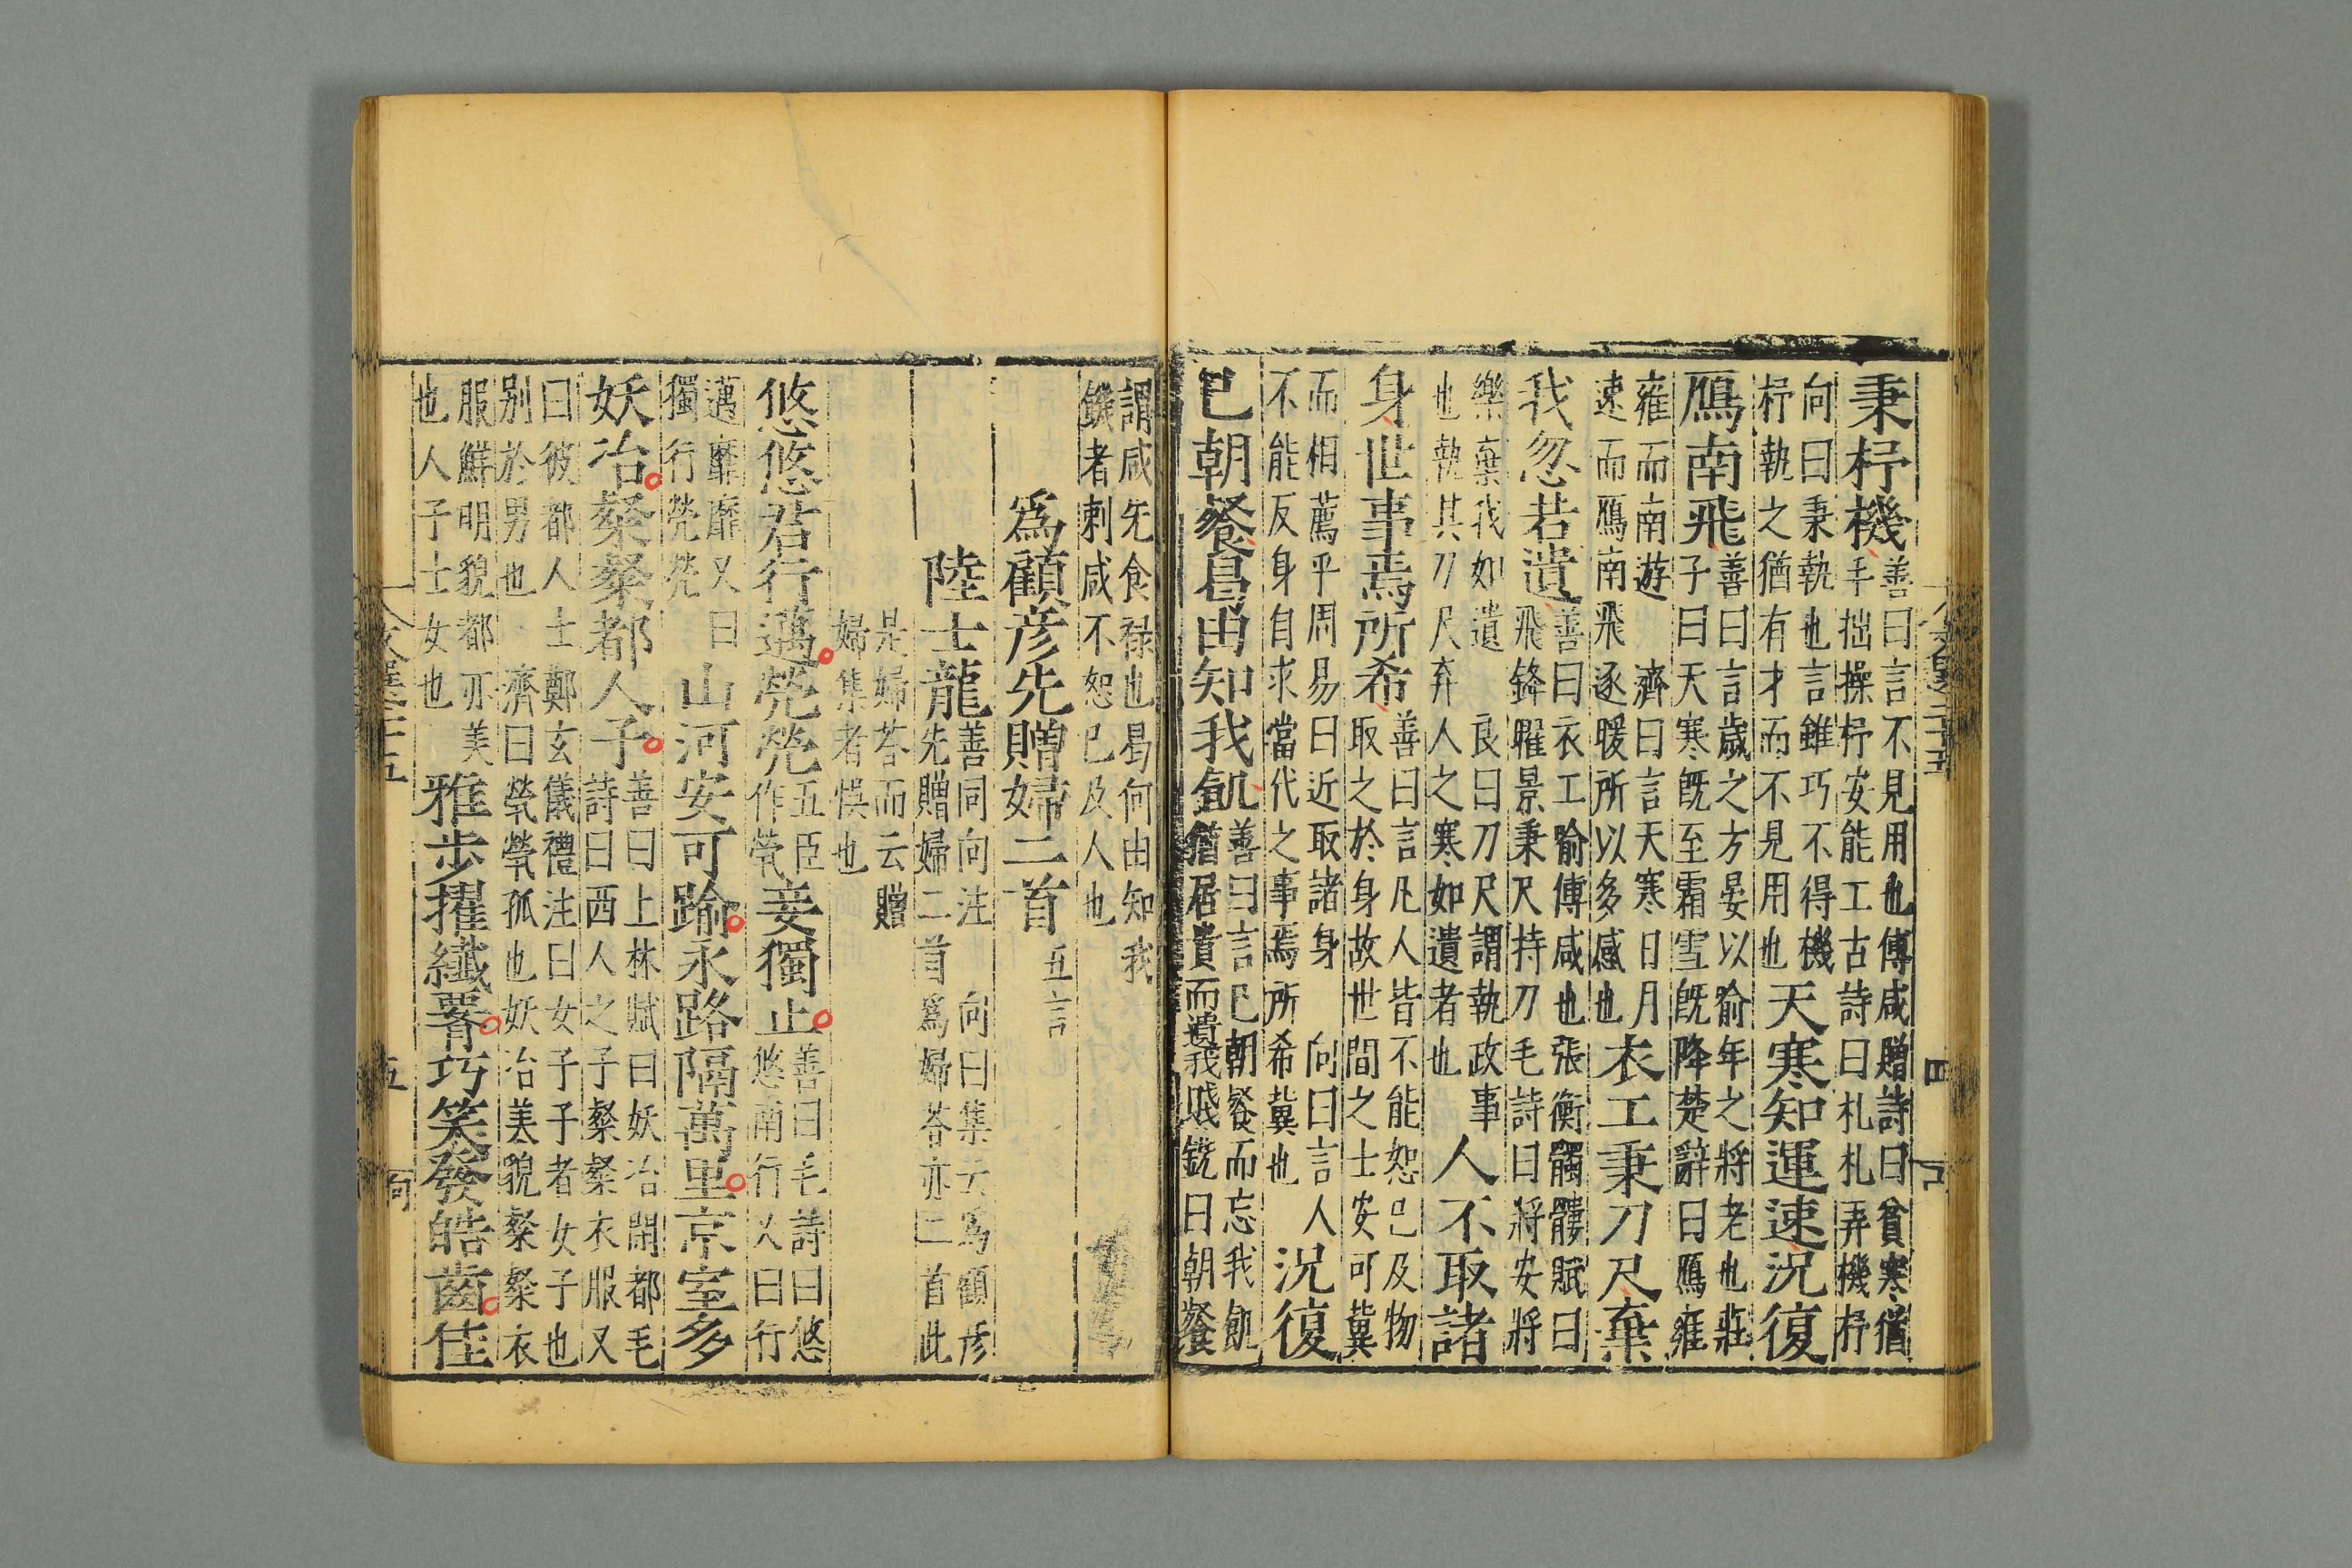 秉杼機
善曰言不見用也傅咸贈詩曰貧寒猶
手拙操杼安能工古詩曰札札弄機杼
向曰秉執也言雖巧不得機
杼執之猶有才而不見用也
天寒知運速況復
鴈南飛
善曰言歲之方晏以喻年之將老也莊
子曰天寒既至霜雪既降楚辭曰鴈雍
雍而南遊 濟曰言天寒日月
速而鴈南飛逐暖所以多感也
衣工秉刀尺棄
我忽若遺
善曰衣工喻傅咸也張衡髑髏賦曰
飛鋒曜景秉尺持刀毛詩曰將安將
樂棄我如遺 良曰刀尺謂執政事
也執其刀尺弃人之寒如遺者也
人不取諸
身世事焉所希
善曰言凡人皆不能恕已及物
取之於身故世間之士安可冀
而相薦乎周易曰近取諸身 向曰言人
不能反身自求當代之事焉所希冀也
況復
已朝餐曷由知我飢
善曰言已朝餐而忘我飢
猶居貴而遺我賤銑曰朝餐
謂咸先食祿也曷何由知我
饑者刺咸不恕已及人也
爲顧彥先贈婦二首 五言
陸士龍
善同向注 向曰集云爲顧彥
先贈婦二首爲婦荅亦二首此
是婦荅而云贈
婦集者悞也
悠悠君行邁煢煢
五臣
作煢
妾獨止
善曰毛詩曰悠
悠南行又曰行
邁靡靡又曰
獨行煢煢
山河安可踰永路隔萬里京室多
妖冶粲粲都人子
善曰上林賦曰妖冶閑都毛
詩曰西人之子粲粲衣服又
曰彼都人士鄭玄儀禮注曰女子子者女子也
別於男也 濟曰煢煢孤也妖冶美貌粲粲衣
服鮮明貌都亦美
也人子士女也
雅步擢纖腰巧笑發皓齒佳
五